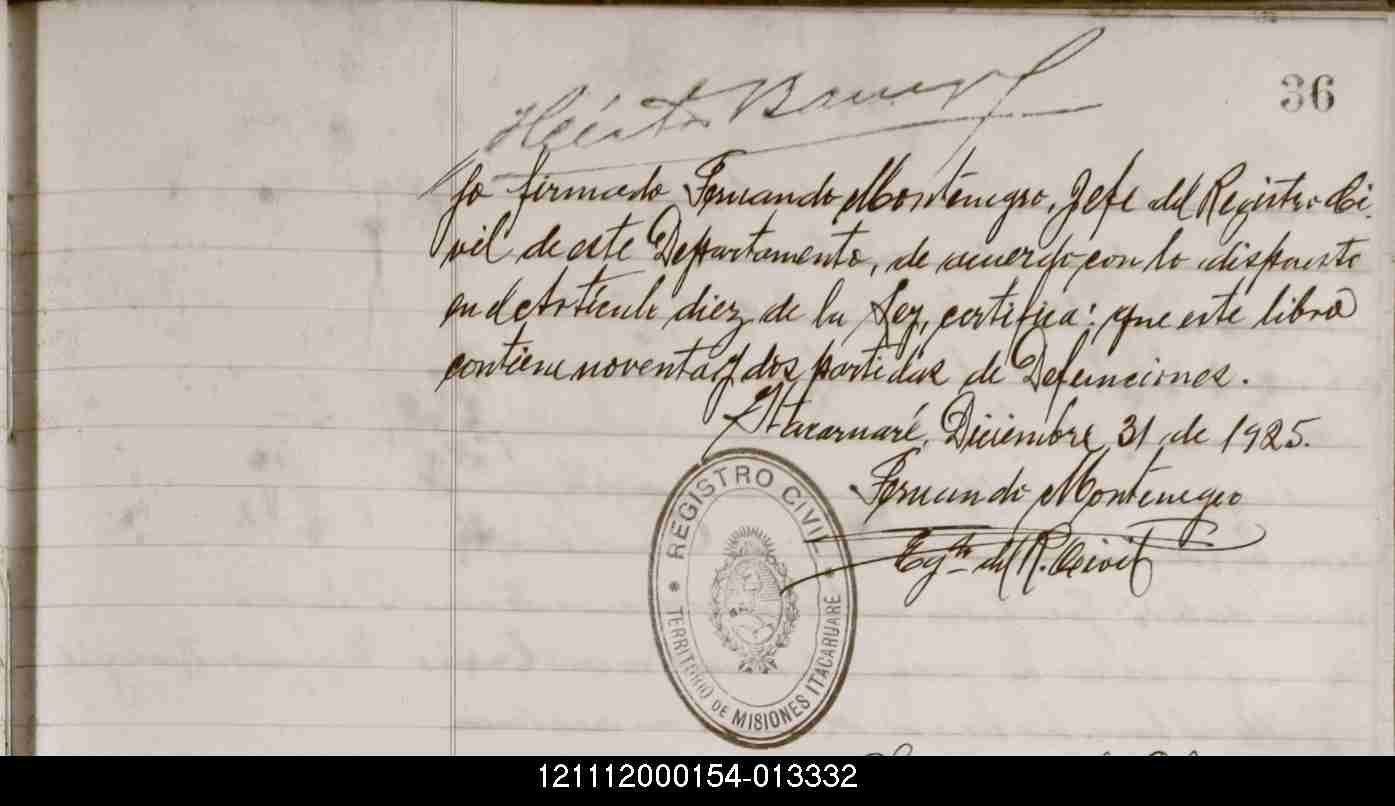 36
Héctor
Yo firmado Fernando Montenegro, Jefe del Registro Ci-
vil de este Departamento, de acuerdo con lo dispuesto
en el Artículo diez de la Ley, certifica: que este libro
contiene noventa y dos partidas de Defunciones.
Itacaruaré, Diciembre 31 de 1925.
Fernando Montenegro
del R. Civil
REGISTRO CIVIL
TERRITORIO DE MISIONES ITACARUARÉ
121112000154-013332